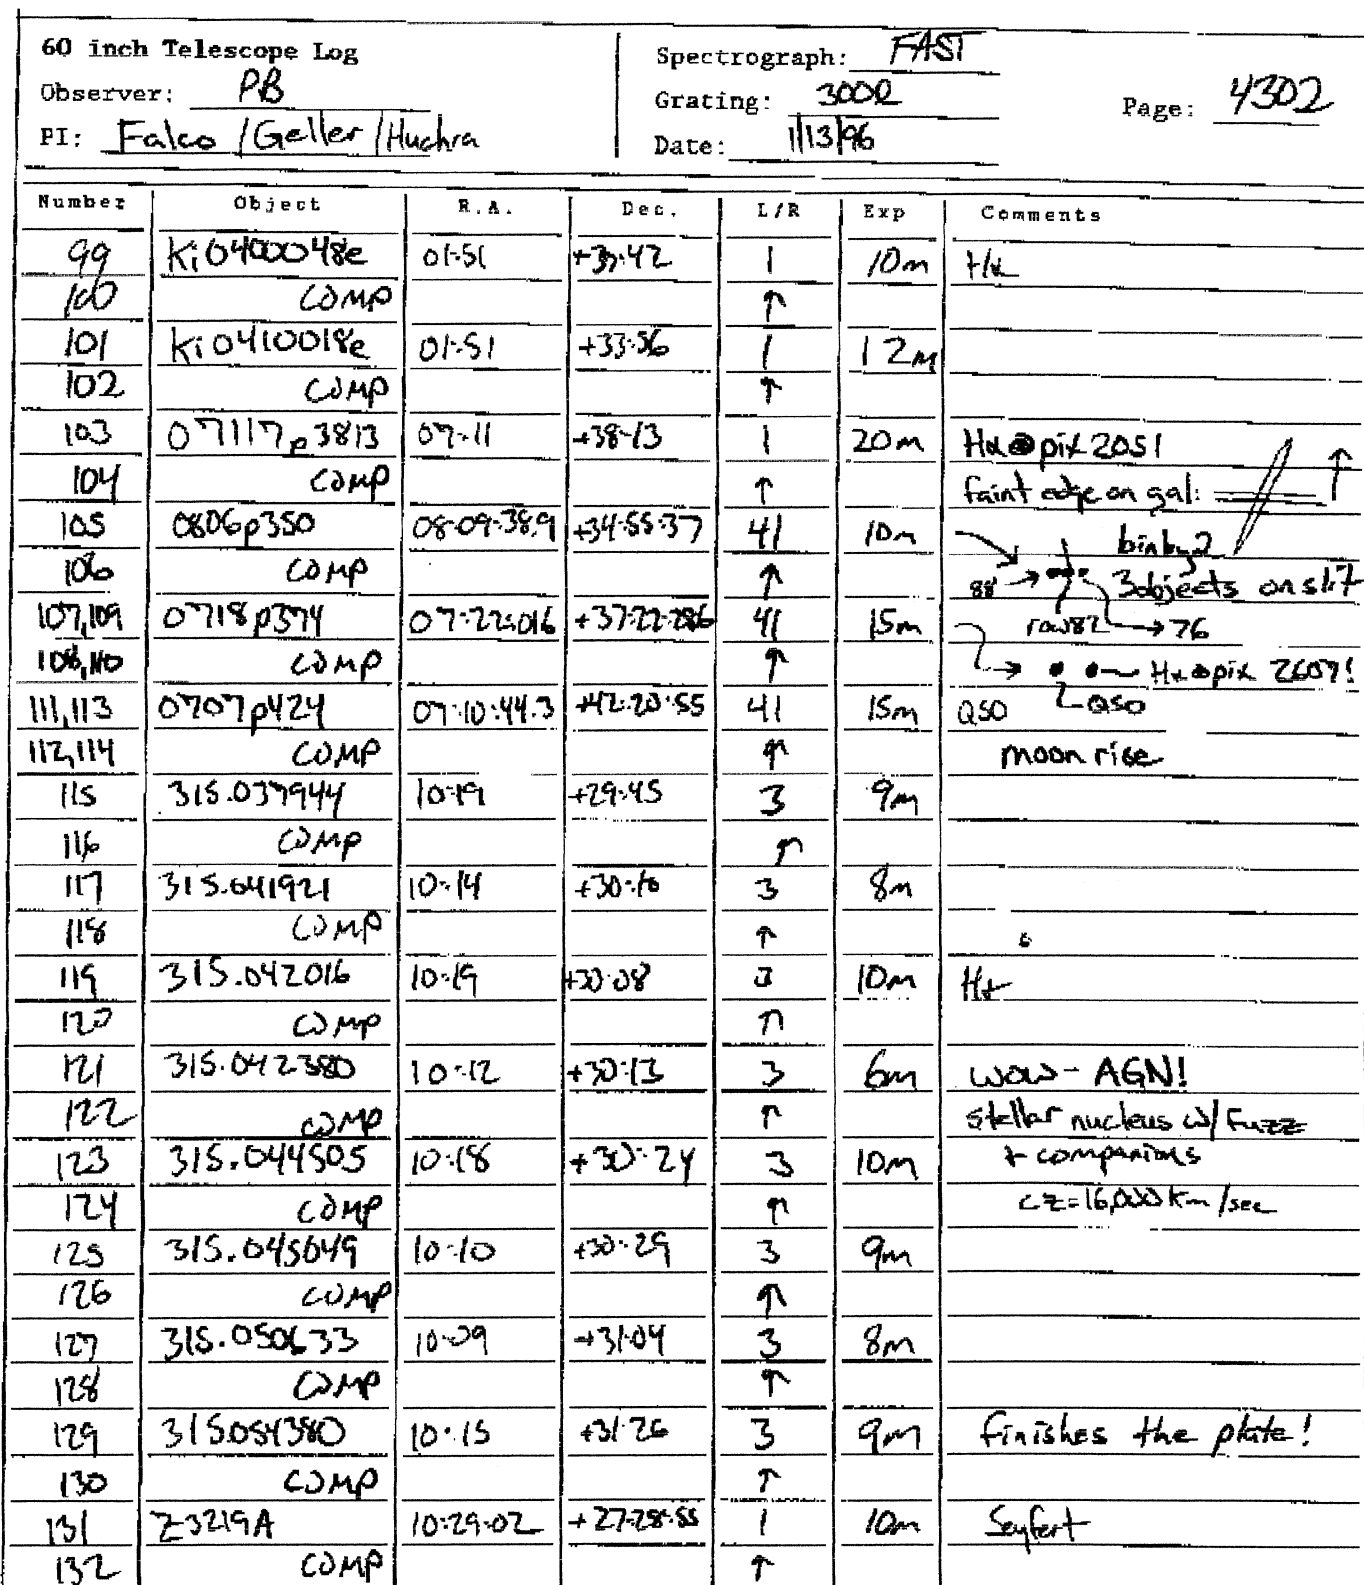 60 inch Telescope Log
Observer: PB
PI: Falco / Geller / Huchra
Spectrograph: FAST
Grating: 300l
Date: 1/13/96
Page: 4302
Number Object R.A. Dec. L/R Exp Comments
99 Ki0400048e 01:51 1 10m Hα
100 COMP ↑
101 Ki0410018e 01:51 +33:56 1 12m
102 COMP ↑
103 07117p3813 07:11 +38:13 1 20m Hα @ pix 2051
104 COMP ↑ faint edge on gal:
105 0806p350 08:09:38.9 +34:55:37 41 10m bin by 2
106 COMP ↑ 88 → 3 objects on slit
107,109 0718p374 41 15m row 82 → 76
108,110 COMP ↑ Hα @ pix 2607!
111,113 0707p424 07:10:44.3 +42:20:55 41 15m QSO QSO
112,114 COMP ↑ moon rise
115 315.037944 10:19 +29:45 3 9m
116 COMP ↑
117 315.041921 10:14 3 8m
118 COMP ↑
119 315.042016 10:19 +30:08 3 10m Hα
120 COMP ↑
121 315.042380 10:12 +30:13 3 6m WOW - AGN!
122 COMP ↑ stellar nucleus w/ Fuzz
123 315.044505 10:18 +30:24 3 10m + companions
124 COMP ↑ cz=16,000 km/sec
125 315.045049 10:10 +30:29 3 9m
126 COMP ↑
127 315.050633 10:09 +31:04 3 8m
128 COMP ↑
129 315.054380 10:15 +31:26 3 9m finishes the plate!
130 COMP ↑
131 Z3219A 10:29:02 +27:28:55 1 10m Seyfert
132 COMP ↑